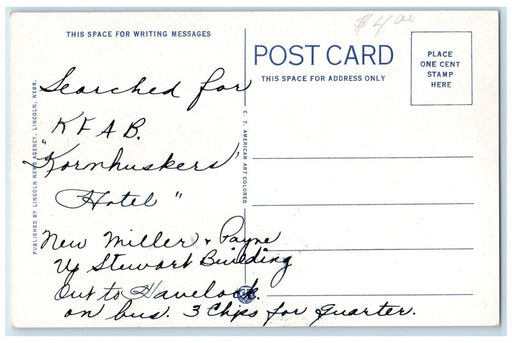 $4.00
THIS SPACE FOR WRITING MESSAGES
POST CARD
THIS SPACE FOR ADDRESS ONLY
PLACE
ONE CENT
STAMP
HERE
PUBLISHED BY LINCOLN NEWS AGENCY, LINCOLN, NEBR.
C. T. AMERICAN ART COLORED
Searched for
KFAB.
"Kornhuskers'
Hotel"
New Miller & Payne
Up Stewart Building
Out to Havelock.
on bus. 3 Chips for quarter.